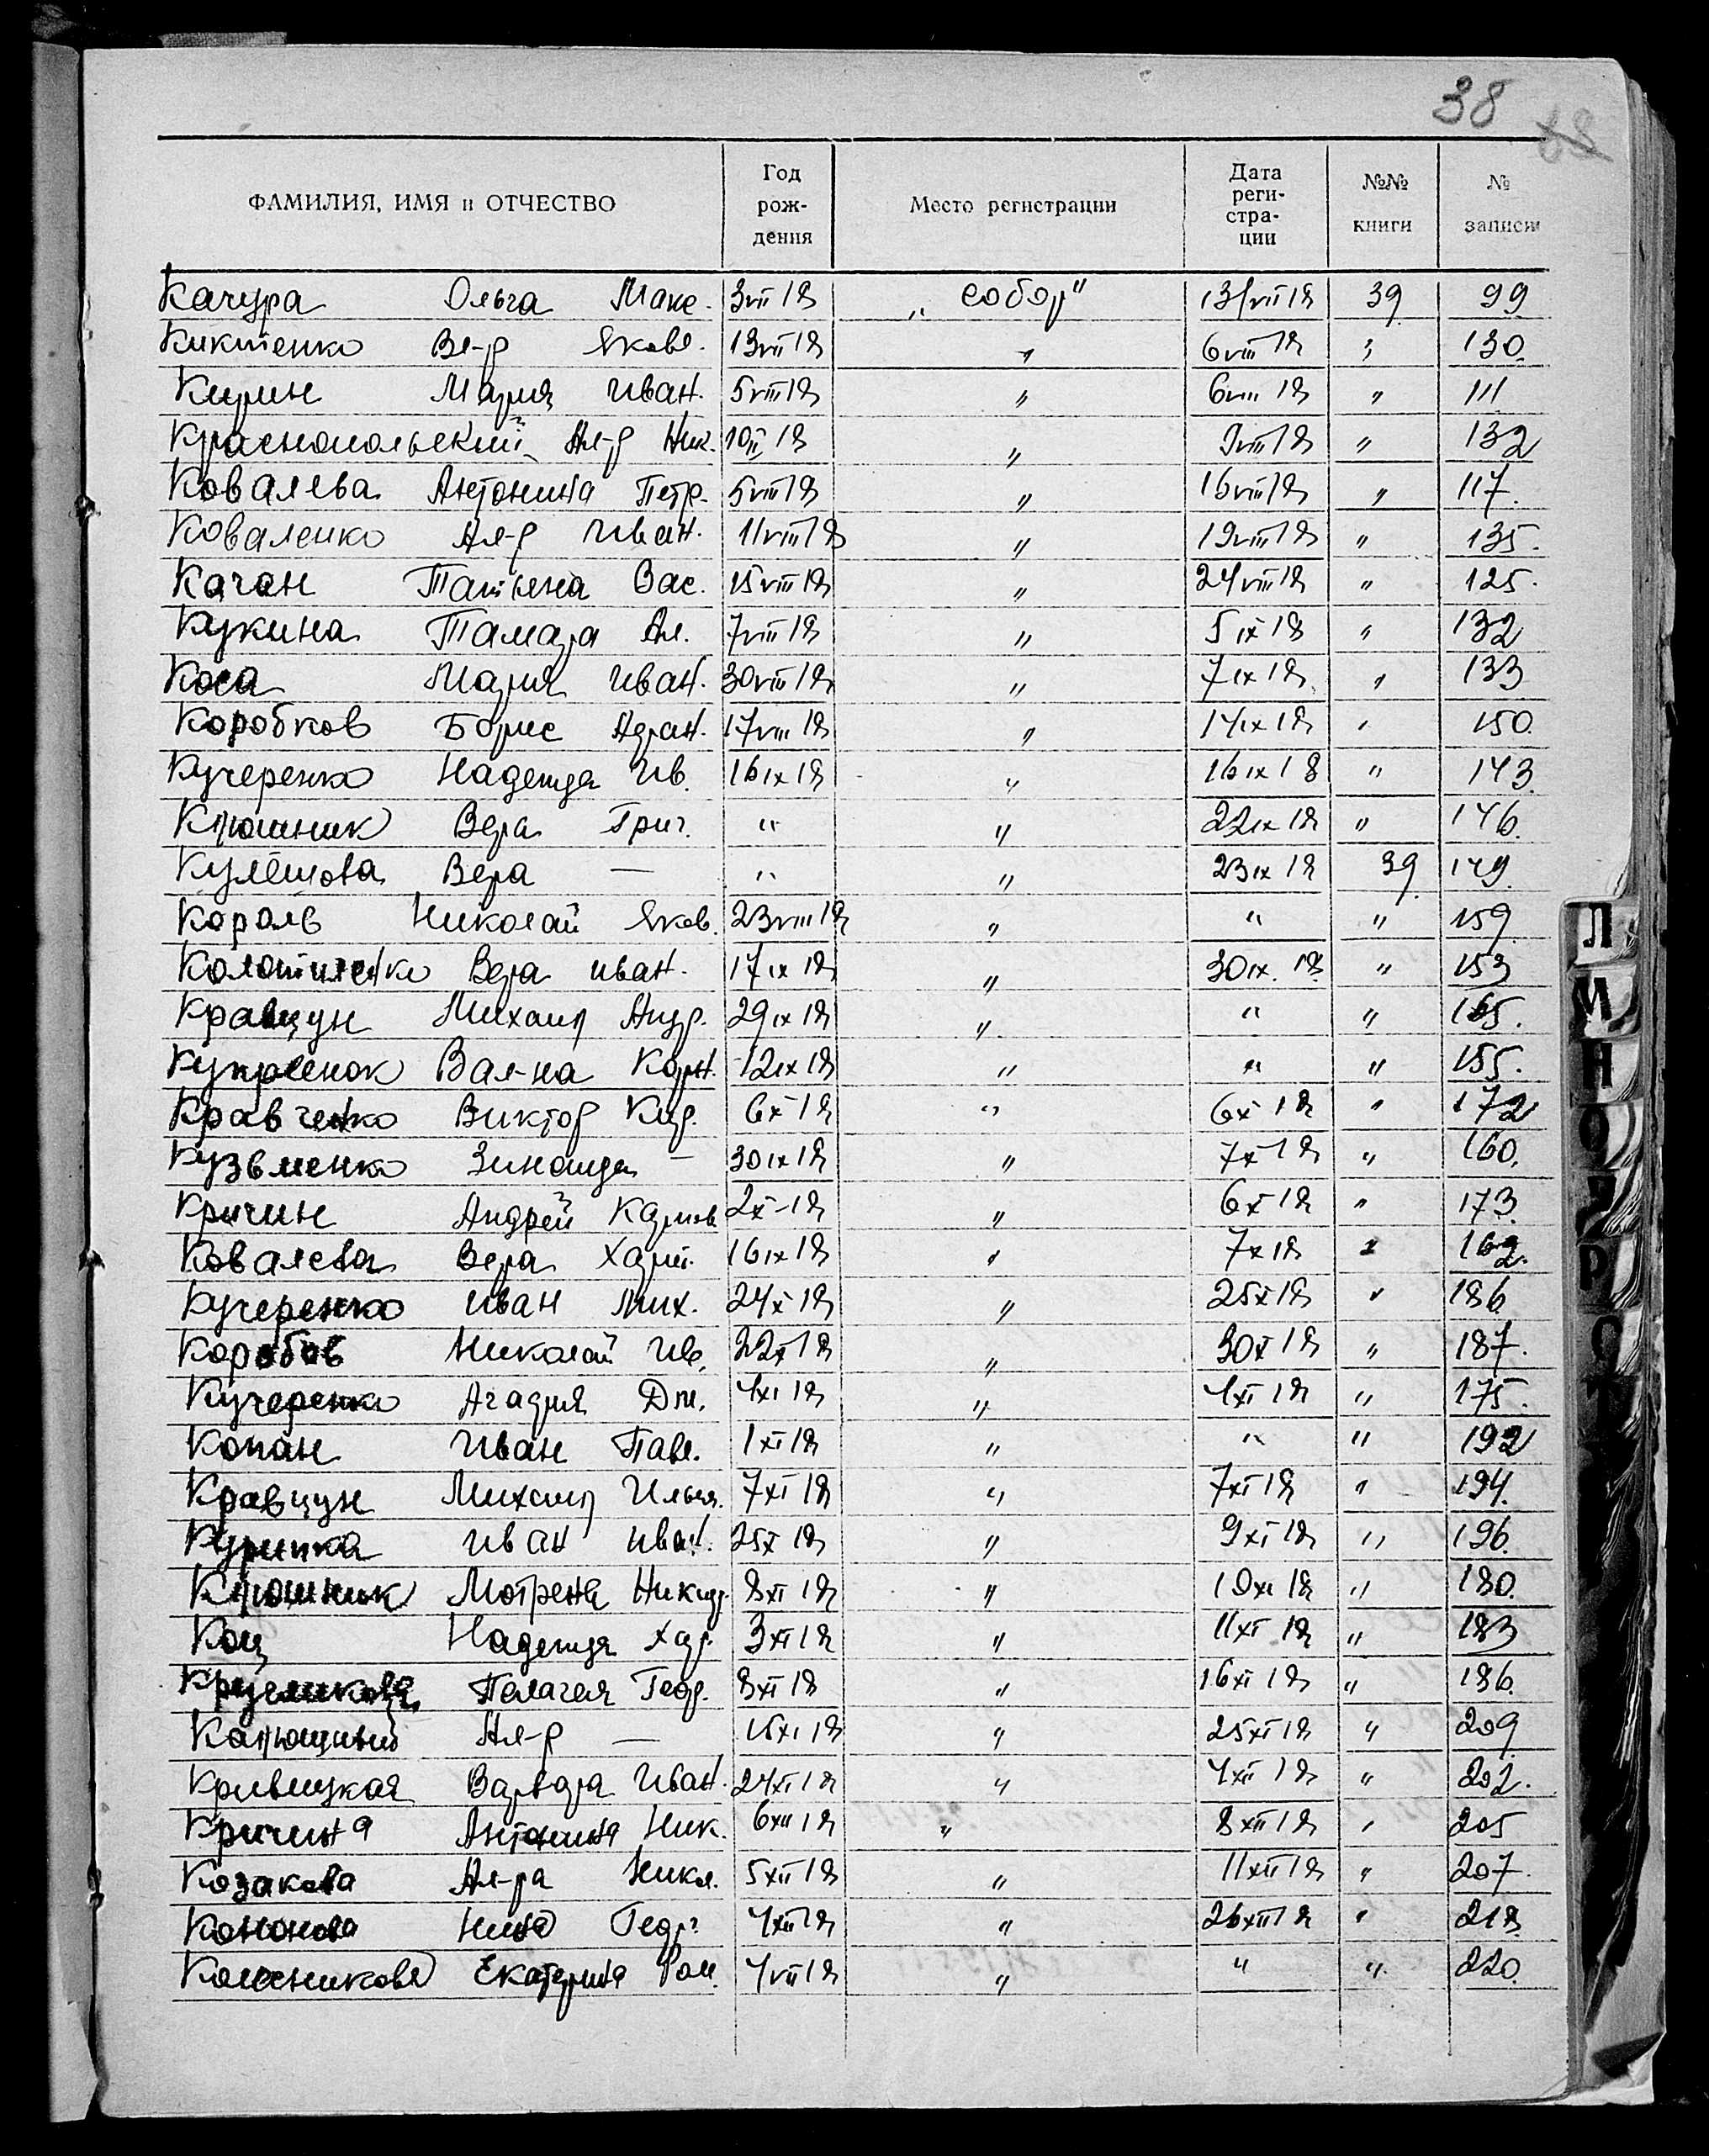 38
ФАМИЛИЯ, ИМЯ и ОТЧЕСТВО Год рождения Место регистрации Дата регистрации №№ книги № записи
Качура Ольга Макс. 3 VII 18 „Собор" 13/VII 18 39 99
Киктенко Вл-р Яковл. 13 VII 18 " 6 VIII 18 " 130.
Кирин Мария Иван. 5 VIII 18 " 6 VIII 18 " 111
Краснопольский Ал-р Ник. 18 " 9 VIII 18 " 132
Ковалева Антонина Петр. 5 VIII 18 " 16 VIII 18 " 117.
Коваленко Ал-р Иван. 11 VIII 18 " 19 VIII 18 " 135.
Качан Татьяна Вас. 15 VIII 18 " 24 VIII 18 " 125.
Кукина Тамара Ал. 7 VIII 18 " 5 IX 18 " 132
Коса Мария Иван. 30 VIII 18 " 7 IX 18 " 133
Коробков Борис Адран. 17 VIII 18 " 14 IX 18 " 150.
Кучеренко Надежда Ив. 16 IX 18 " 16 IX 18 " 143.
Клюшник Вера Григ. " " 22 IX 18 " 146.
Кулешова Вера — " " 23 IX 18 39 149.
Король Николай Яков. 23 VIII 18 " " " 159.
Колотиленко Вера Иван. 17 IX 18 " 30 IX. 18 " 153
Кравцун Михаил Андр. 29 IX 18 " " " 165.
Вал-на Корн. 12 IX 18 " " " 155.
Кравченко Виктор Кир. 6 X 18 " 6 X 18 " 172
Кузьменко Зинаида — 30 IX 18 " 7 X 18 " 160.
Кричин Андрей Карпов 2 X - 18 " 6 X 18 " 173.
Ковалева Вера Харит. 16 IX 18 " 7 X 18 " 162.
Кучеренко Иван Мих. 24 X 18 " 25 X 18 " 186.
Коробов Николай Ив. 22 X 18 " 30 X 18 " 187.
Кучеренко Агафия Дм. 4 XI 18 " 4 XI 18 " 175.
Копан Иван Павл. 1 XI 18 " " " 192
Кравцун Михаил Ильич. 7 XI 18 " 7 XI 18 " 194.
Курипка Иван Иван. 25 X 18 " 9 XI 18 " 196.
Клюшник Мотрена Никиф. 8 XI 18 " 10 XI 18 " 180.
Коц Надежда Хар. 3 XI 18 " 11 XI 18 " 183
Пелагея Геор. 8 XI 18 " 16 XI 18 " 186.
Калюжный Ал-р — 15 XI 18 " 25 XI 18 " 209
Кривицкая Варвара Иван. 24 XI 18 " 4 XII 18 " 202.
Кричина Антонина Ник. 6 XII 18 " 8 XII 18 " 205
Козакова Ал-ра Никол. 5 XII 18 " 11 XII 18 " 207.
Кононова Нина Георг. 4 XII 18 " 26 XII 18 " 218.
Колесникова Екатерина Ром. 4 VII 18 " " " 220.
Л
М
Н
О
П
Р
С
Т